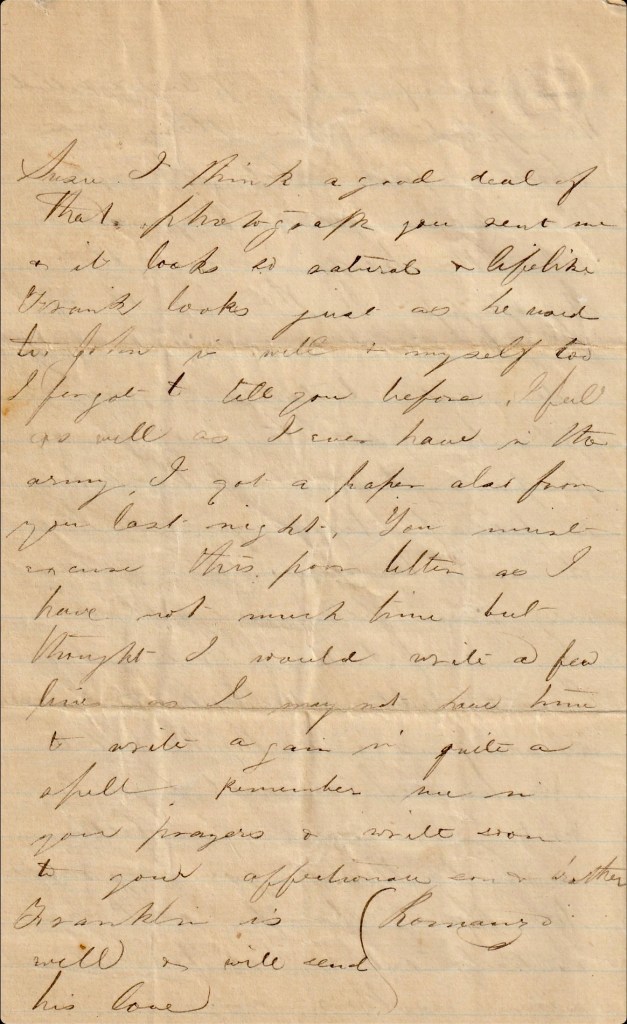 Susie I think a good deal of
that photograph you sent me
& it looks so natural & lifelike
Frank looks just as he used
to. John is well & myself too
I forgot to tell you before. I feel
as well as I ever have in the
army, I got a paper also from
you last night. You must
excuse this poor letter as I
have not much time but
thought I would write a few
lines as I may not have time
to write again in quite a
spell. Remember me in
your prayers & write soon
to your affectionate son & brother
Franklin is Romanzo
well & will send
his love